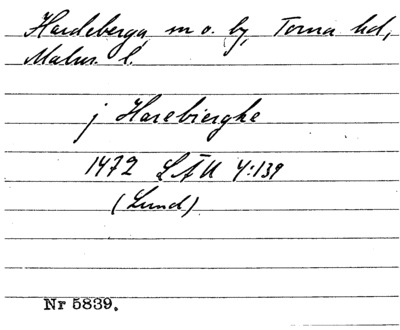 Hardeberga, sn o. by, Torna hd,
Malm. l.
j Harebierghe
1472 LÄU 4:139
(Lund)
Nr 5839.